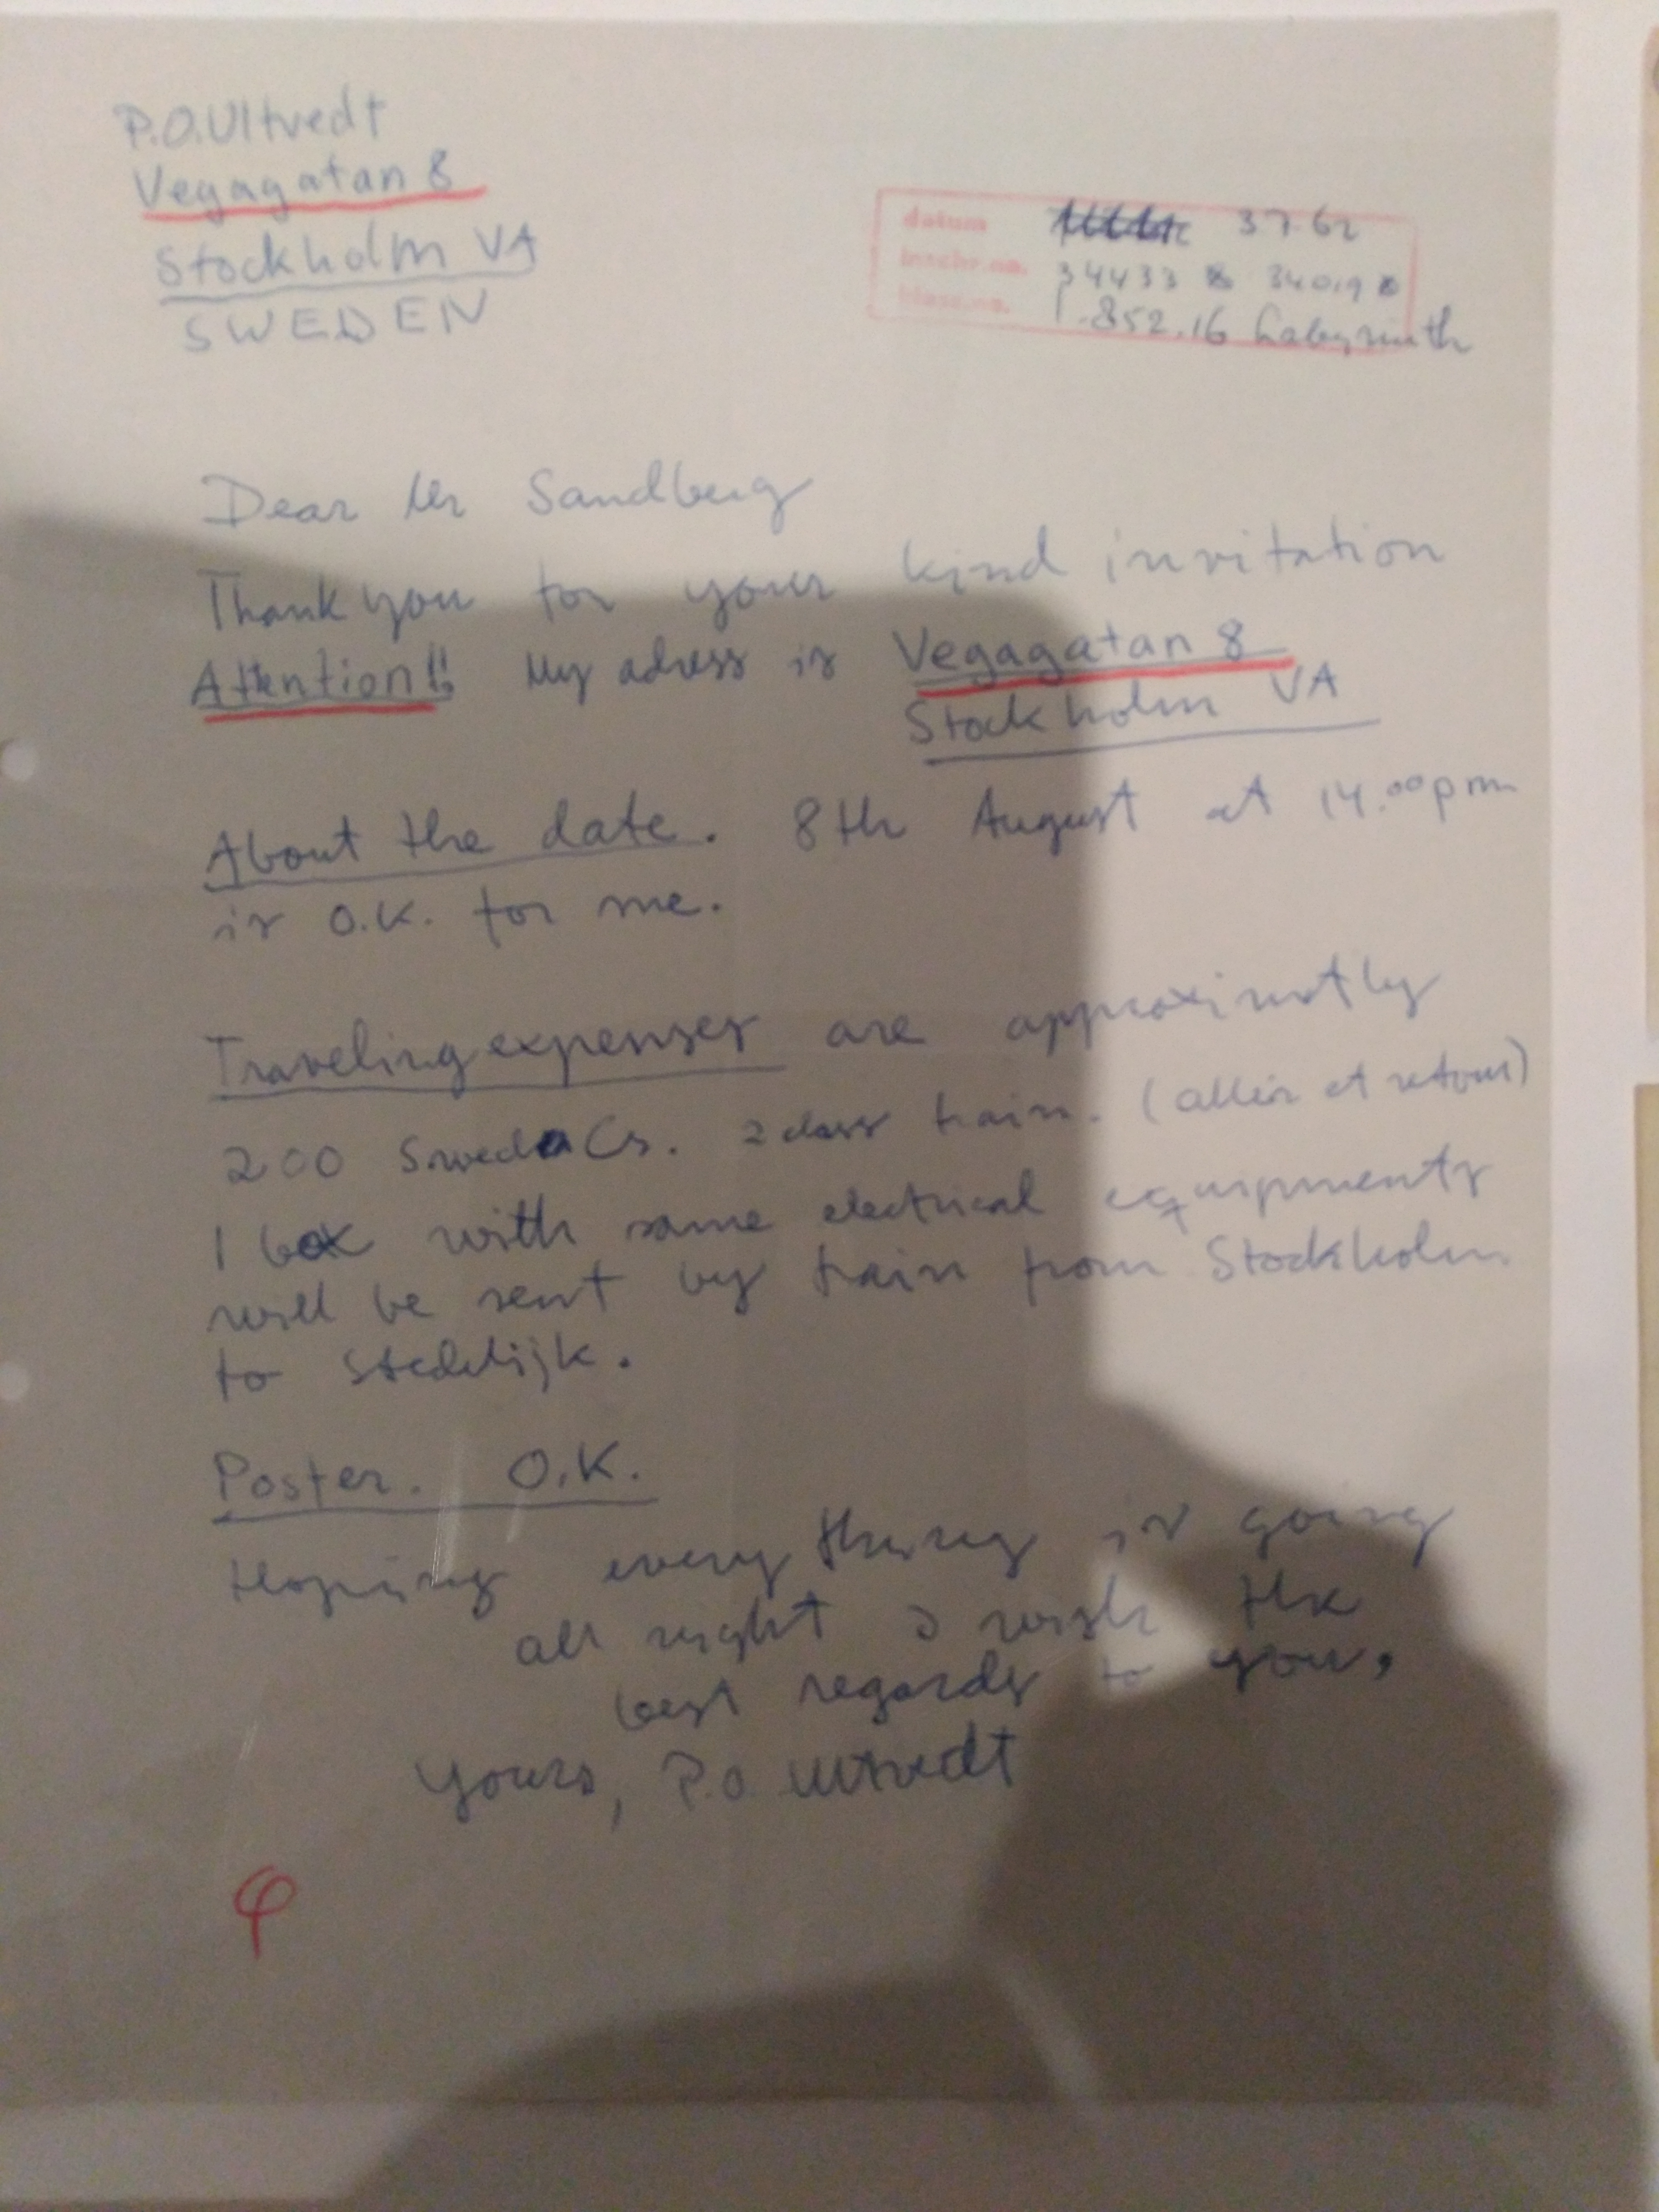 P.O.Ultvedt
Vegagatan 8
Stockholm VA
SWEDEN
datum 3762
inschr.no. 34433 34019
klass.no. 852.16 Labyrinth
Dear Mr Sandberg
Thank you for your kind invitation
Attention!! My adress is Vegagatan 8
Stockholm VA
About the date. 8th August at 14.00 pm
is O.K. for me.
Traveling expenses are approximatly
200 Cr. 2 class train. (aller et retour)
1 box with some electrical equipments
will be sent by train from Stockholm
to Stedelijk.
Poster. O.K.
Hoping every thing is going
all right I wish the
best regards to you,
Yours, P.O Ultvedt